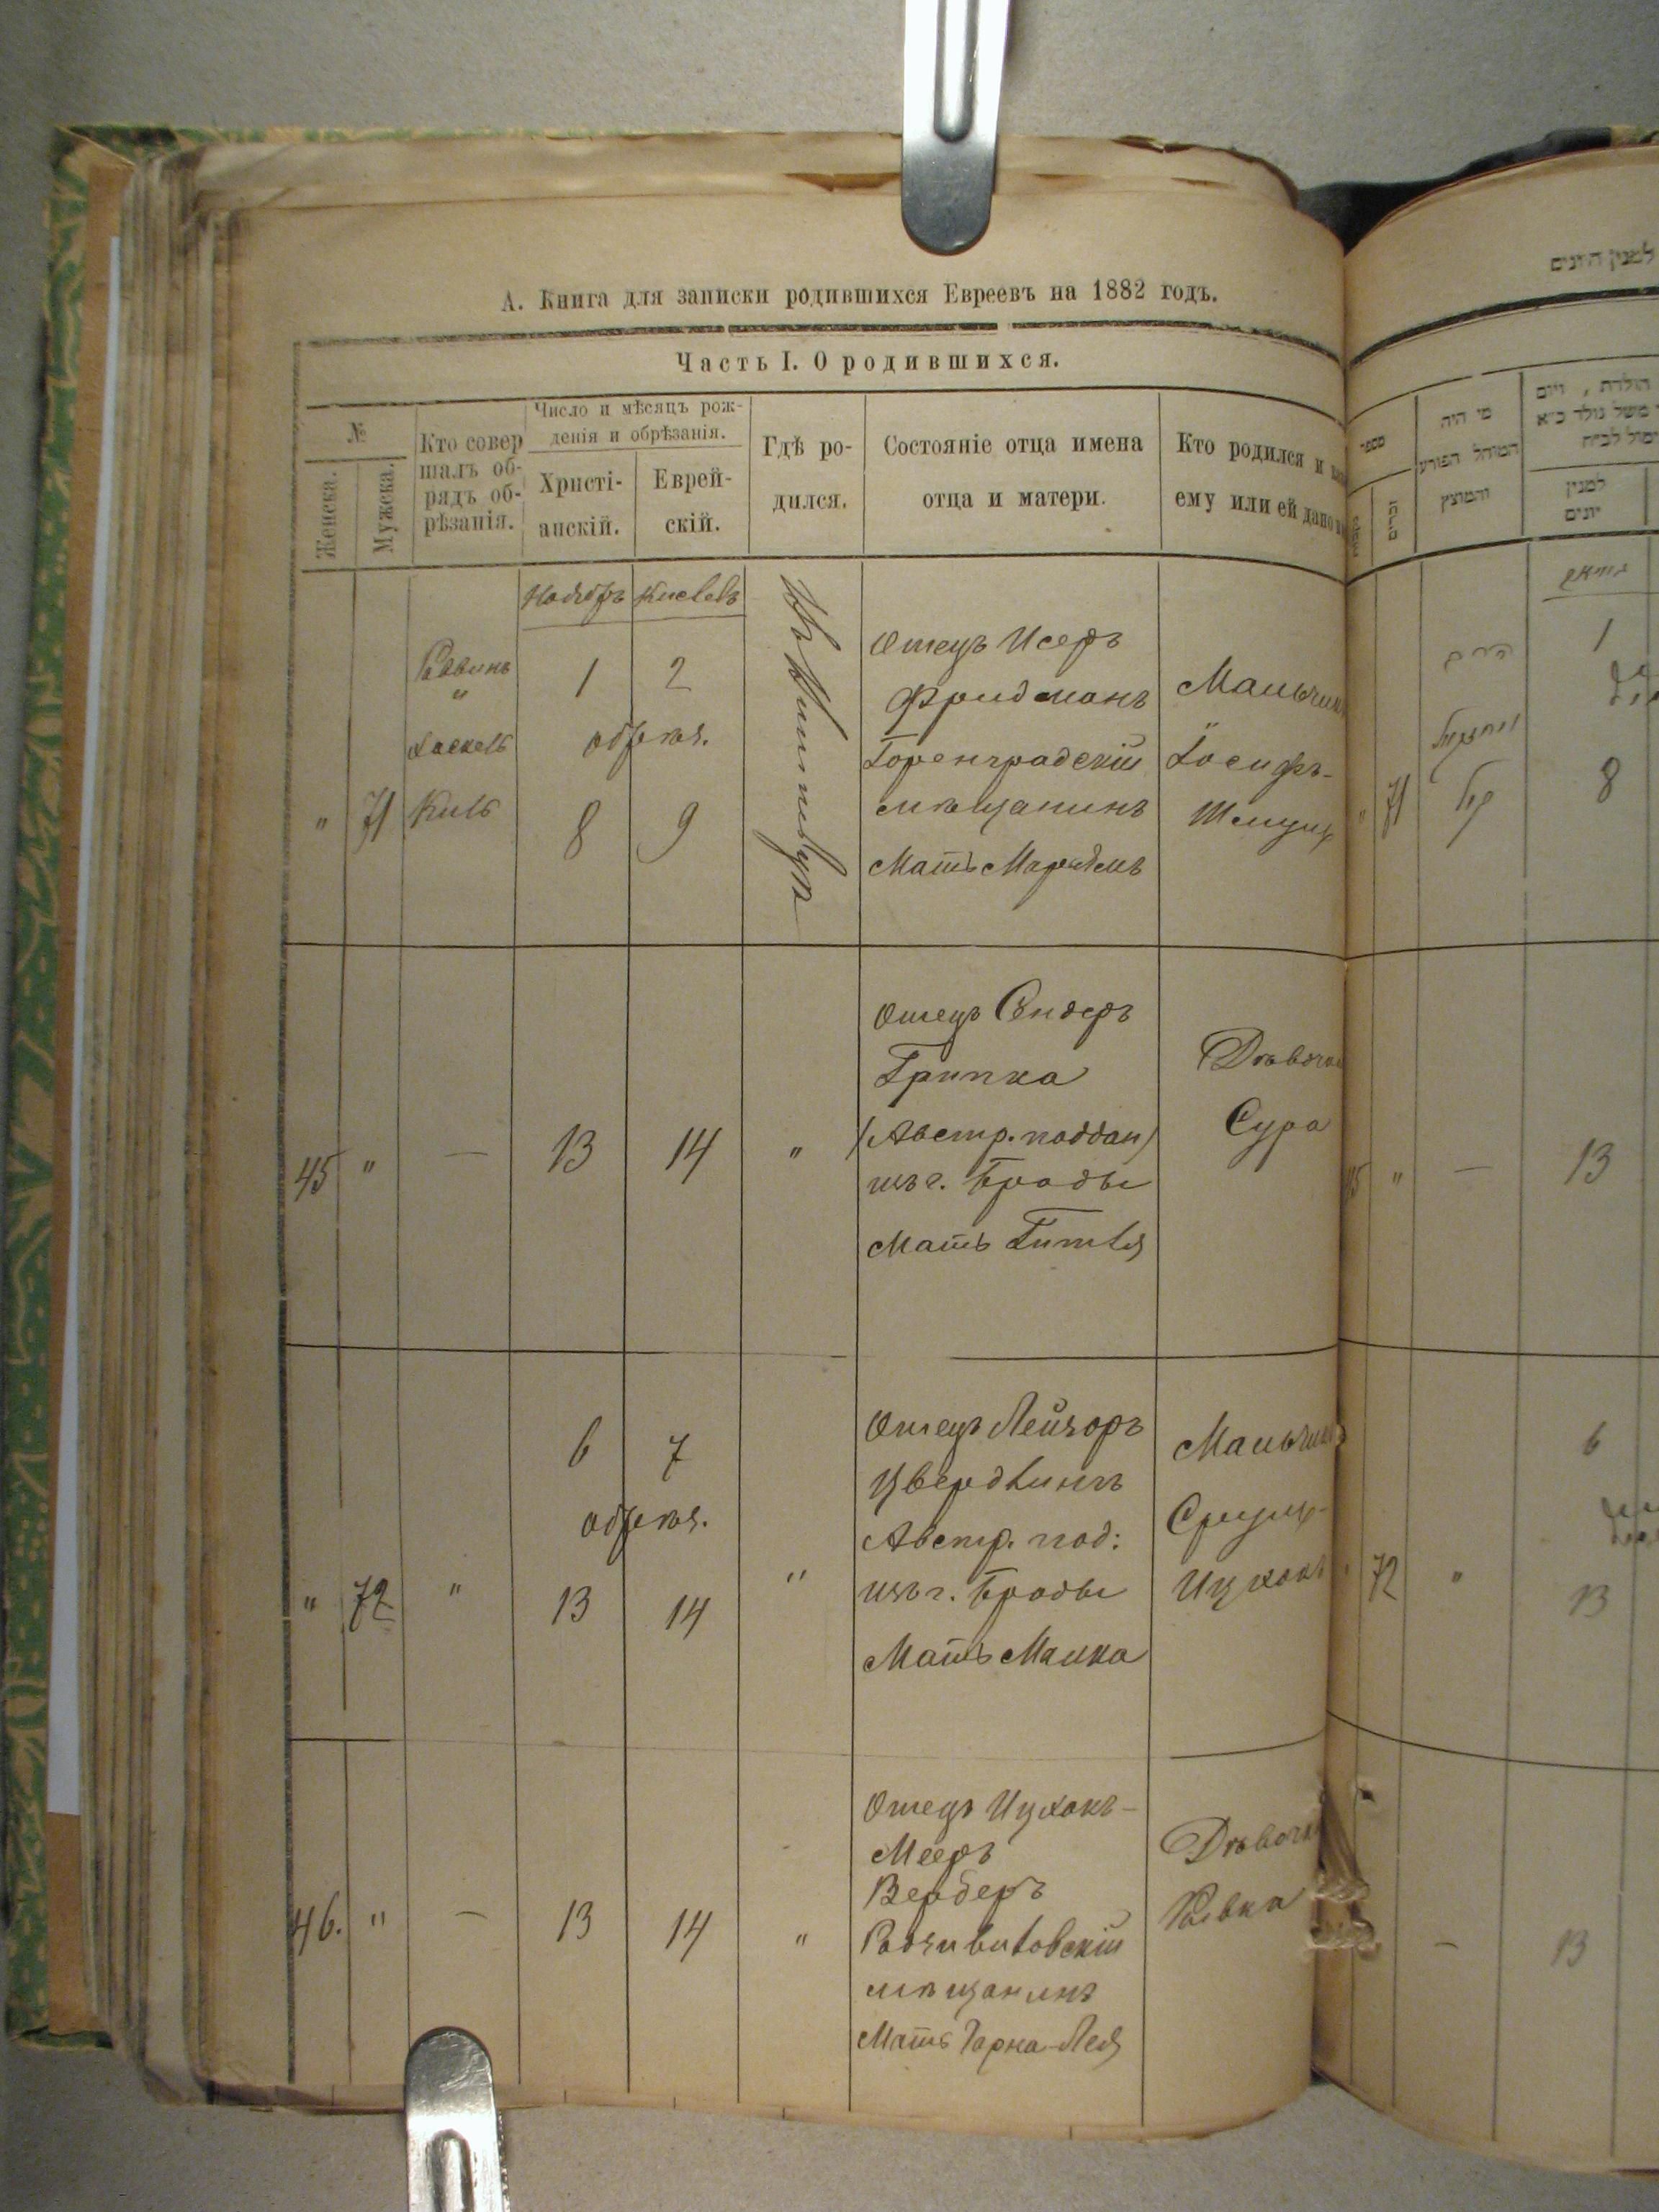 А. Книга для записки родившихся Евреевъ на 1882 годъ.
Часть I. О родившихся.
№
Женска.
Мужска.
Кто совер
шалъ об-
рядъ об-
рѣзанія.
Число и мѣсяцъ рож-
денія и обрѣзанія.
Христі-
анскій.
Еврей-
скій.
Гдѣ ро-
дился.
Состояніе отца имена
отца и матери.
Кто родился и
ему или ей дано
Ноябрь Кислевъ
" 71
Раввинъ
"
Хаскель
1 2
обрѣз.
8 9
Отецъ Исеръ
Фридманъ
Горенградскій
мѣщанинъ
Мать Марьямъ
Мальчикъ
Іосифъ-
45 " — 13 14 "
Отецъ Сендеръ
Грипка
(Австр. поддан)
изъ г. Броды
Мать Гитля
Дѣвочка
Сура
" 72 "
6 7
обрѣз.
13 14
"
Отецъ Лейзоръ
Цвердлингъ
Австр. под:
изъ г. Броды
Мать Малка
Мальчикъ
Ицхокъ
46. " — 13 14 "
Отецъ Ицхокъ-
Мееръ
Верберъ
Радзивиловскій
мѣщанинъ
Мать Лея
Дѣвочка
Ривка
למנין היונים
מספר
זכרים
מי היה
המוהל הפורע
והמוצץ
הולדת , ויום
למנין
יונים
" 71
1
8
" — 13
6
72 "
13
— 13